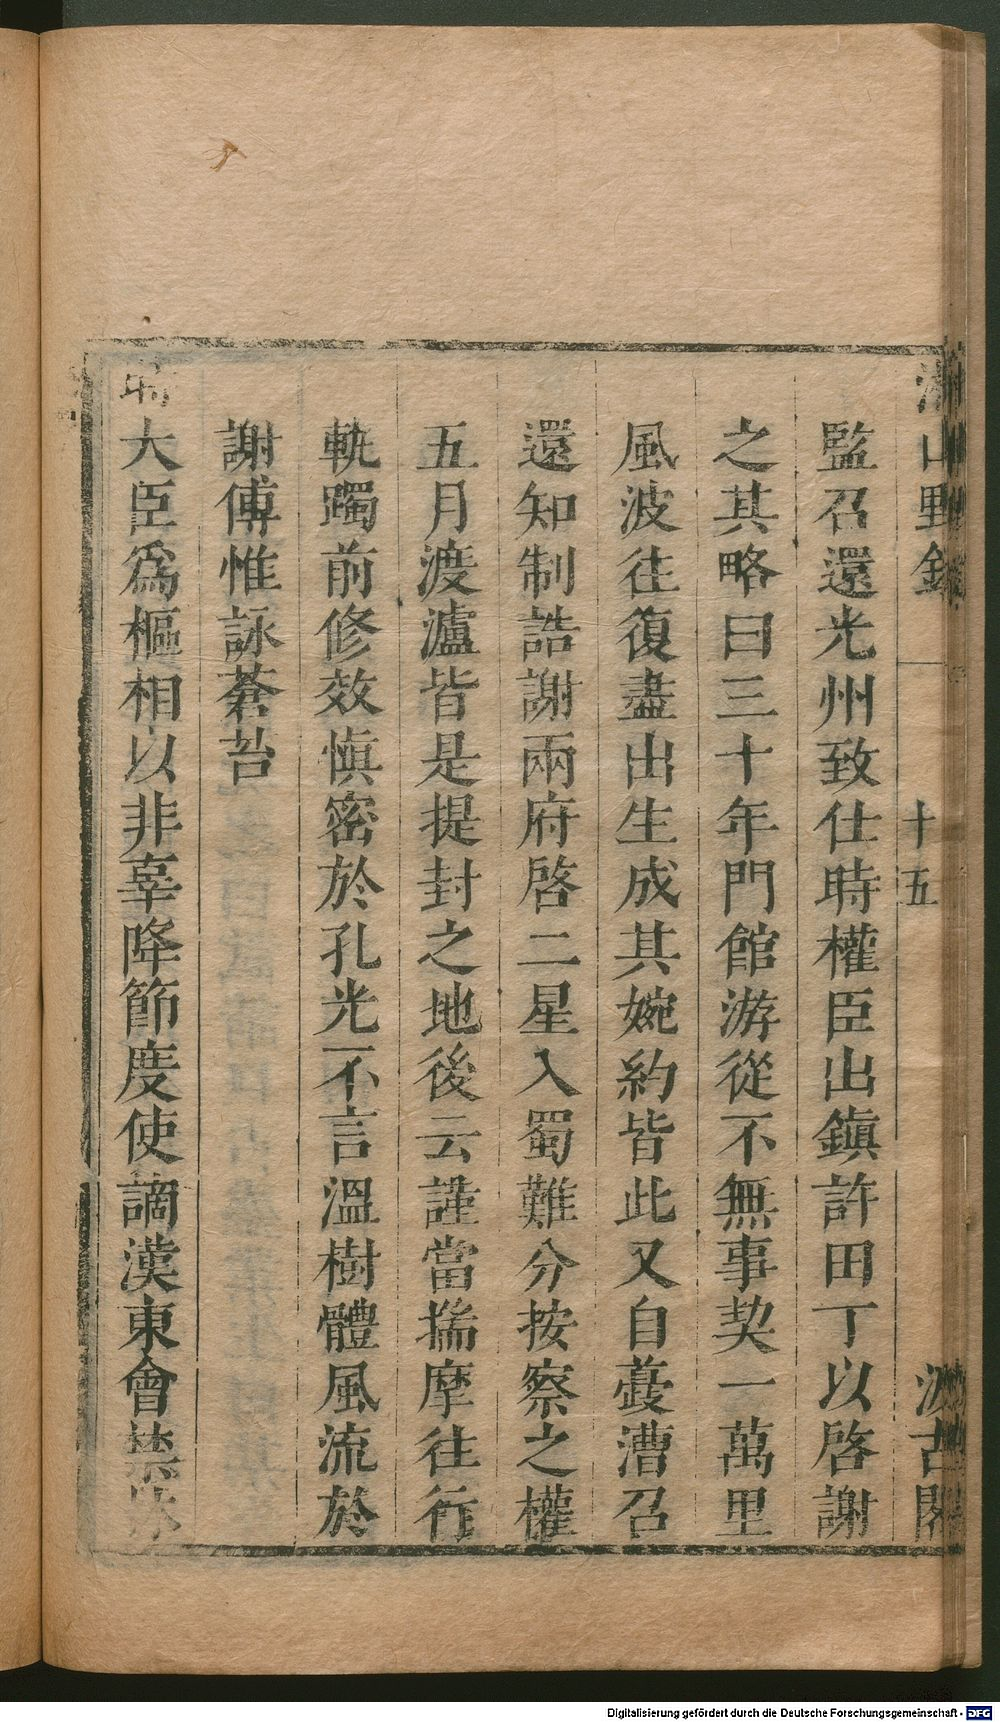 湘山野錄 十五 汲古閣
監召還光州致仕時權臣出鎭許田丁以啓謝
之其略曰三十年門館游從不無事契一萬里
風波往復盡出生成其婉約皆此又自䕫漕召
還知制誥謝兩府啓二星入蜀難分按察之權
五月渡瀘皆是提封之地後云謹當揣摩往行
軌躅前修效愼密於孔光不言溫樹體風流於
謝傅惟詠蒼苔
大臣爲樞相以非辜降節度使謫漢東會禁
Digitalisierung gefördert durch die Deutsche Forschungsgemeinschaft - DFG